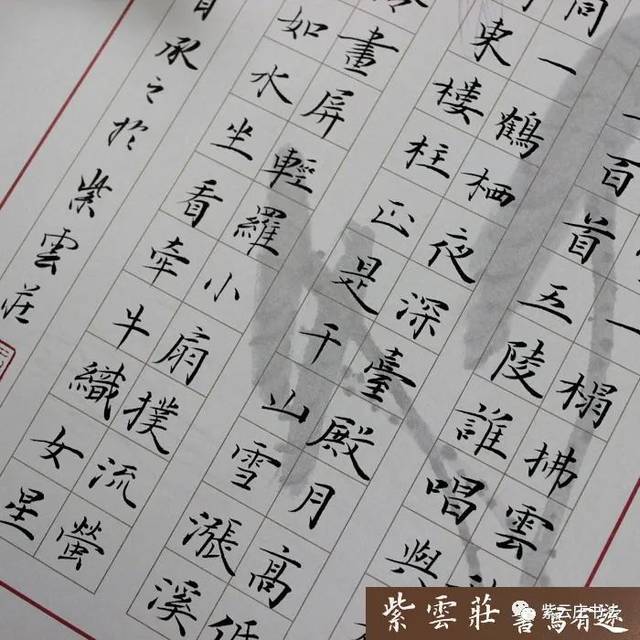 一榻拂雲
百首五陵誰唱與
同一鶴栖夜深臺殿月高低
東樓柱正是千山雪漲溪
畫屏輕羅小扇撲流螢
如水坐看牽牛織女星
承之於紫雲莊
紫雲莊
紫云庄书法